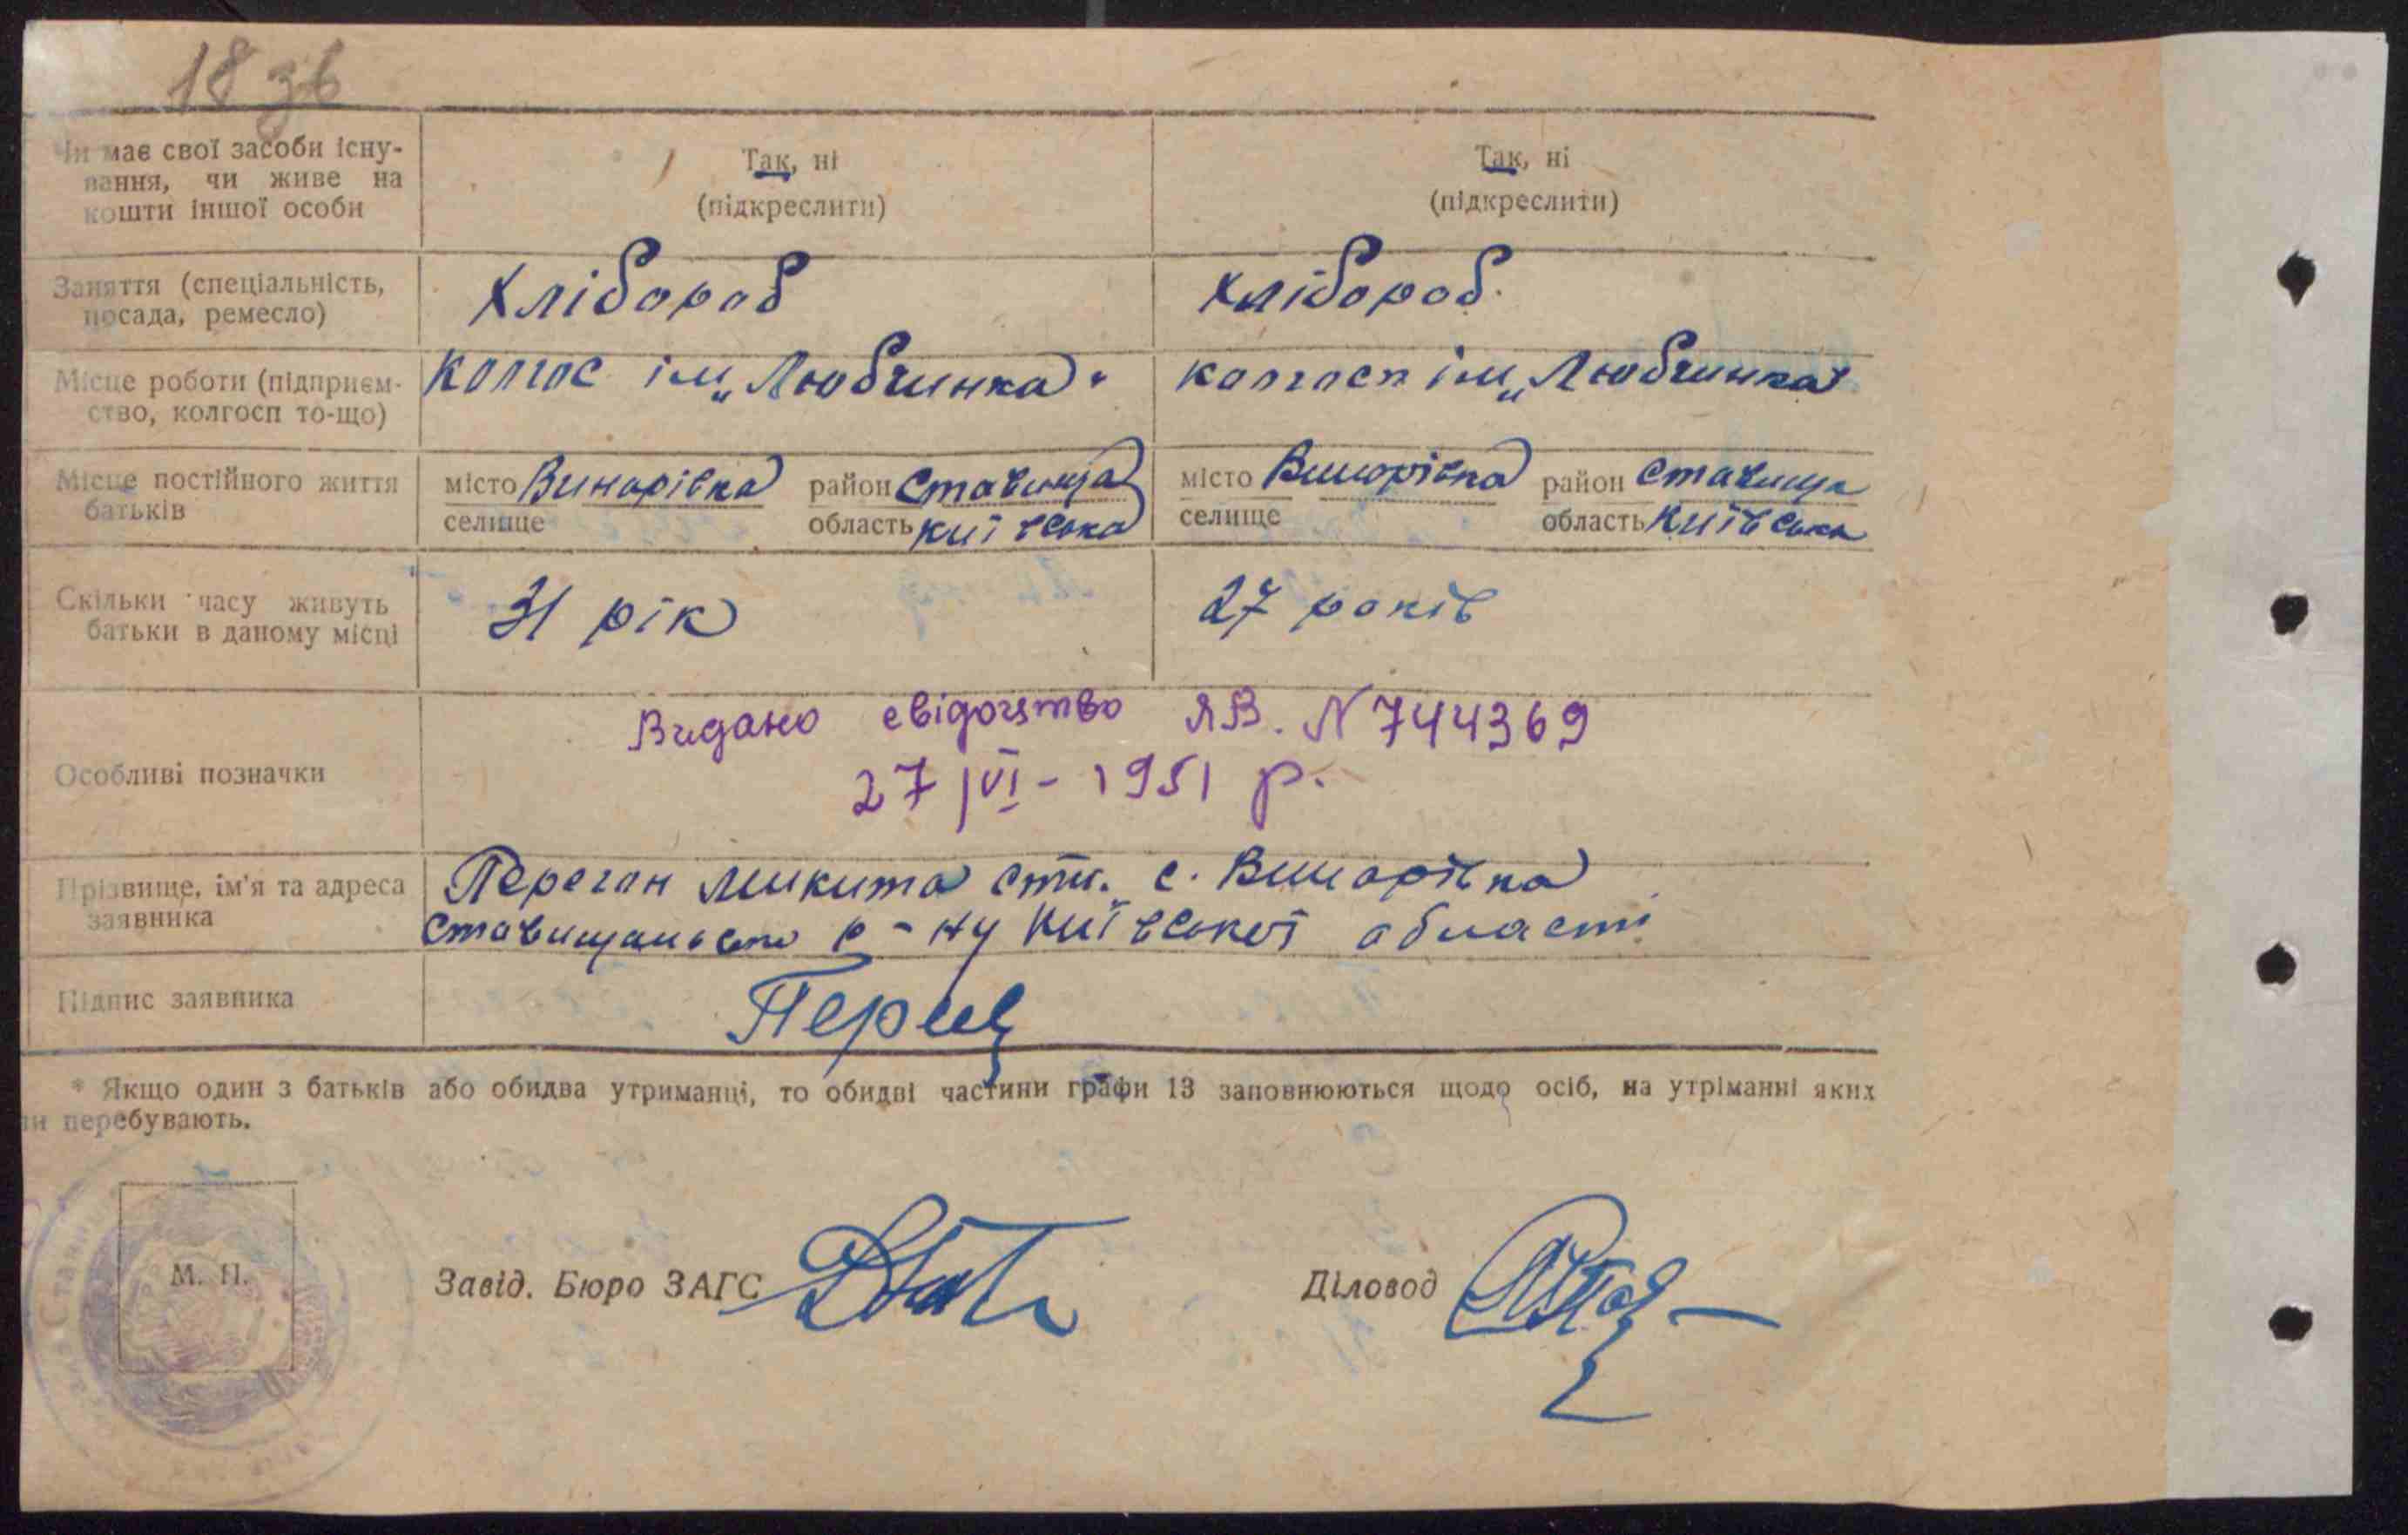 18 зв
Чи має свої засоби існу-
вання, чи живе на
кошти іншої особи
Так, ні
(підкреслити)
Так, ні
(підкреслити)
Заняття (спеціальність,
посада, ремесло)
Хлібороб
Хлібороб.
Місце роботи (підприєм-
ство, колгосп то-що)
Колгос ім „Любчинка"
колгосп ім „Любчинка"
Місце постійного життя
батьків
місто Винарівка район Ставища
селище область Київська
місто Винарівка район Ставища
селище область Київська
Скільки часу живуть
батьки в даному місці
31 рік
27 років
Особливі позначки
Видано свідоцтво ЯВ. N 744369
27/VI - 1951 р.
Прізвище, ім'я та адреса
заявника
Микита с. Винарівка
р-ну Київської області
Підпис заявника
* Якщо один з батьків або обидва утриманці, то обидві частини графи 13 заповнюються щодо осіб, на утріманні яких
перебувають.
М. П.
Завід. Бюро ЗАГС
Діловод